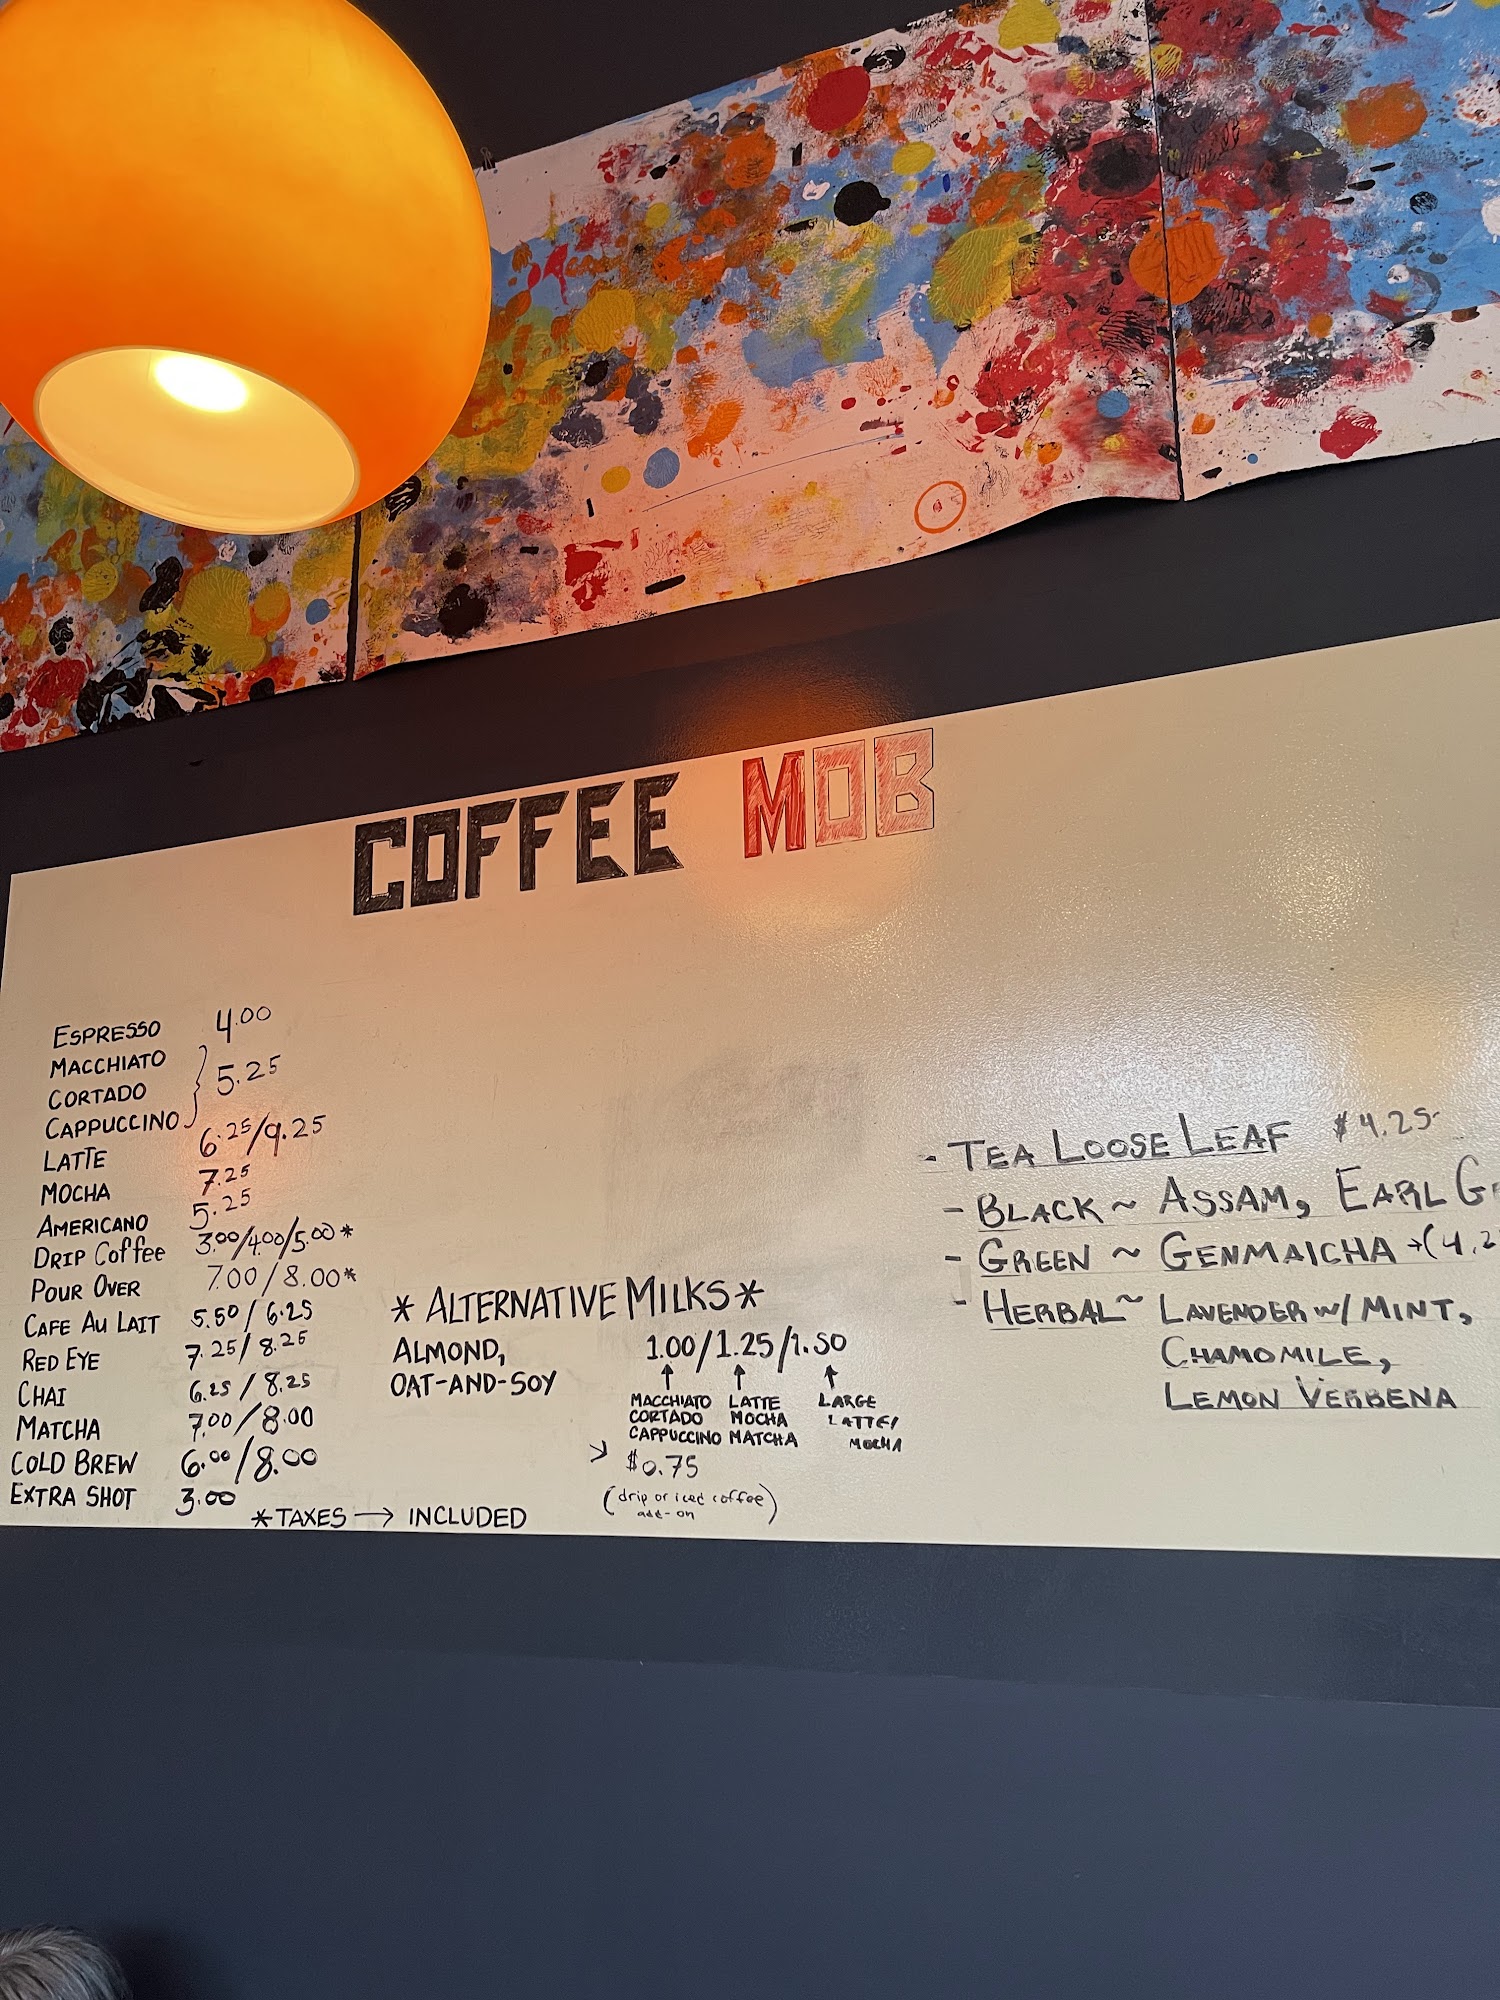 COFFEE MOB
ESPRESSO 4.00
MACCHIATO
CORTADO } 5.25
CAPPUCCINO
LATTE 6.25/9.25
MOCHA 7.25
AMERICANO 5.25
DRIP Coffee 3.00/4.00/5.00*
POUR OVER 7.00/8.00*
CAFE AU LAIT 5.50/6.25
RED EYE 7.25/8.25
CHAI 6.25/8.25
MATCHA 7.00/8.00
COLD BREW 6.00/8.00
EXTRA SHOT 3.00
*TAXES → INCLUDED
* ALTERNATIVE MILKS *
ALMOND, 1.00/1.25/1.50
OAT-AND-SOY
MACCHIATO LATTE LARGE
CORTADO MOCHA LATTE/
CAPPUCCINO MATCHA MOCHA
> $0.75
(drip or iced coffee)
add-on
- TEA LOOSE LEAF $4.25
- BLACK ~ ASSAM, EARL G
- GREEN ~ GENMAICHA →(4.2
- HERBAL ~ LAVENDER w/ MINT,
CHAMOMILE,
LEMON VERBENA